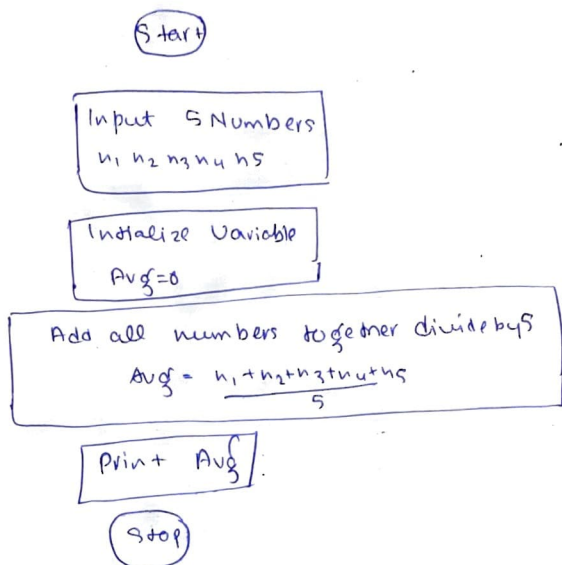 Start
Input 5 Numbers
n1 n2 n3 n4 n5
Initialize Variable
Avg=0
Add all numbers together divide by 5
Avg = n1+n2+n3+n4+n5
5
Print Avg.
Stop